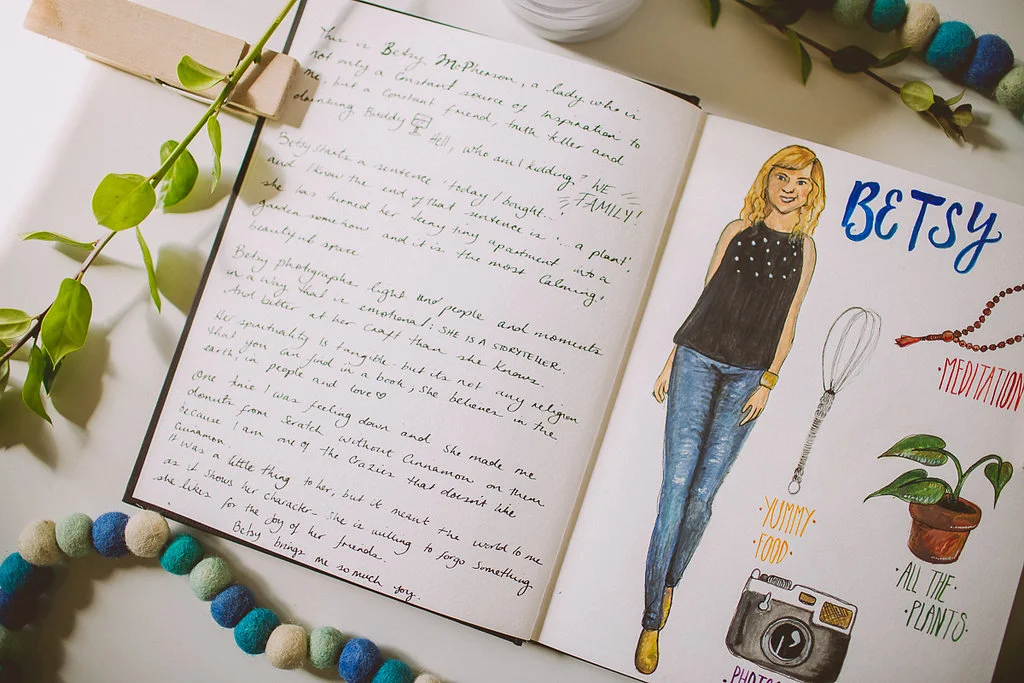 This is Betsy McPherson, a lady who is
not only a constant source of inspiration to
me, but a constant friend, truth teller and
drinking buddy Hell, who am I kidding? WE
FAMILY!
Betsy starts a sentence "today I bought...
and I know the end of that sentence is ... a plant!
she has turned her teeny tiny apartment into a
garden somehow and it is the most calming,
beautiful space.
Betsy photographs light and people and moments
in a way that is emotional; SHE IS A STORYTELLER.
And better at her craft than she knows.
Her spirituality is tangible but its not any religion
that you can find in a book; She believes in the
earth, in people and love
One time I was feeling down and she made me
donuts from scratch without cinnamon on them
because I am one of the crazies that doesn't like
cinnamon.
It was a little thing to her, but it meant the world to me
as it shows her character - she is willing to forgo something
she likes for the joy of her friends.
Betsy brings me so much joy.
BETSY
MEDITATION
·YUMMY·
·FOOD·
·ALL THE·
·PLANTS·